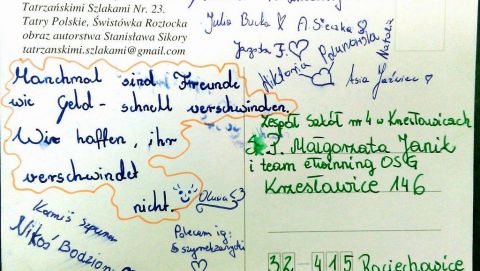 Tatrzańskimi Szlakami Nr. 23.
Tatry Polskie, Świstówka Roztocka
obraz autorstwa Stanisława Sikory
tatrzanskimi.szlakami@gmail.com
Julia Bucka
A. Sieczka
Jagoda J.
Wiktoria
Natalia
Asia
Manchmal sind Freunde
wie Geld - schnell verschwinden.
Wir haffen, ihr
verschwindet
nicht.
Oliwia <3
Zespół Szkół nr 4 w Krzesławicach
P. Małgorzata Janik
i team etwinning OSG
Krzesławice 146
32-415 Raciechowice
Kamiś
Nikoś
Polecam ig: